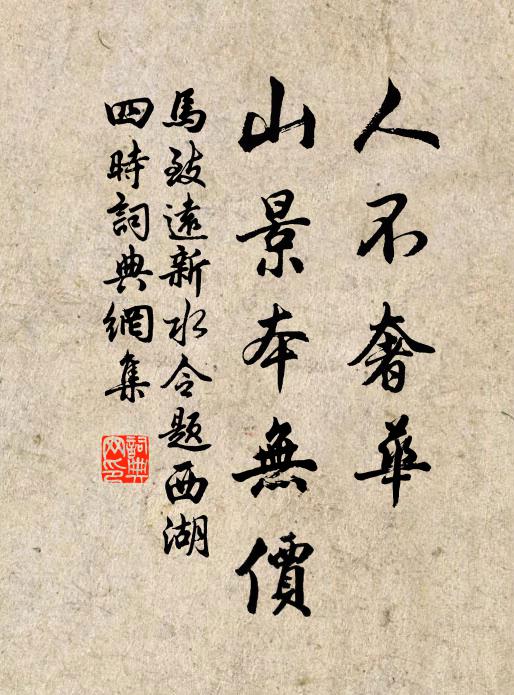 人不奢華
山景本無價
馬致遠新水令题西湖
四時詞典網集
詞典网印